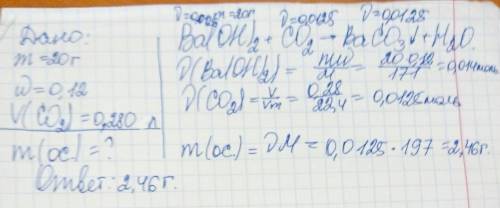 Дано:
m = 20г
ω = 0,12
V(CO₂) = 0,280 л
m(ос.) = ?
Ответ: 2,46 г.
m=20г ν=0,0125 ν=0,0125
Ba(OH)₂ + CO₂ → BaCO₃↓ + H₂O.
ν(Ba(OH)₂) = mω/M = 20·0,12/171 = 0,014моль
ν(CO₂) = V/Vm = 0,28/22,4 = 0,0125моль
m(ос.) = νM = 0,0125·197 = 2,46г.